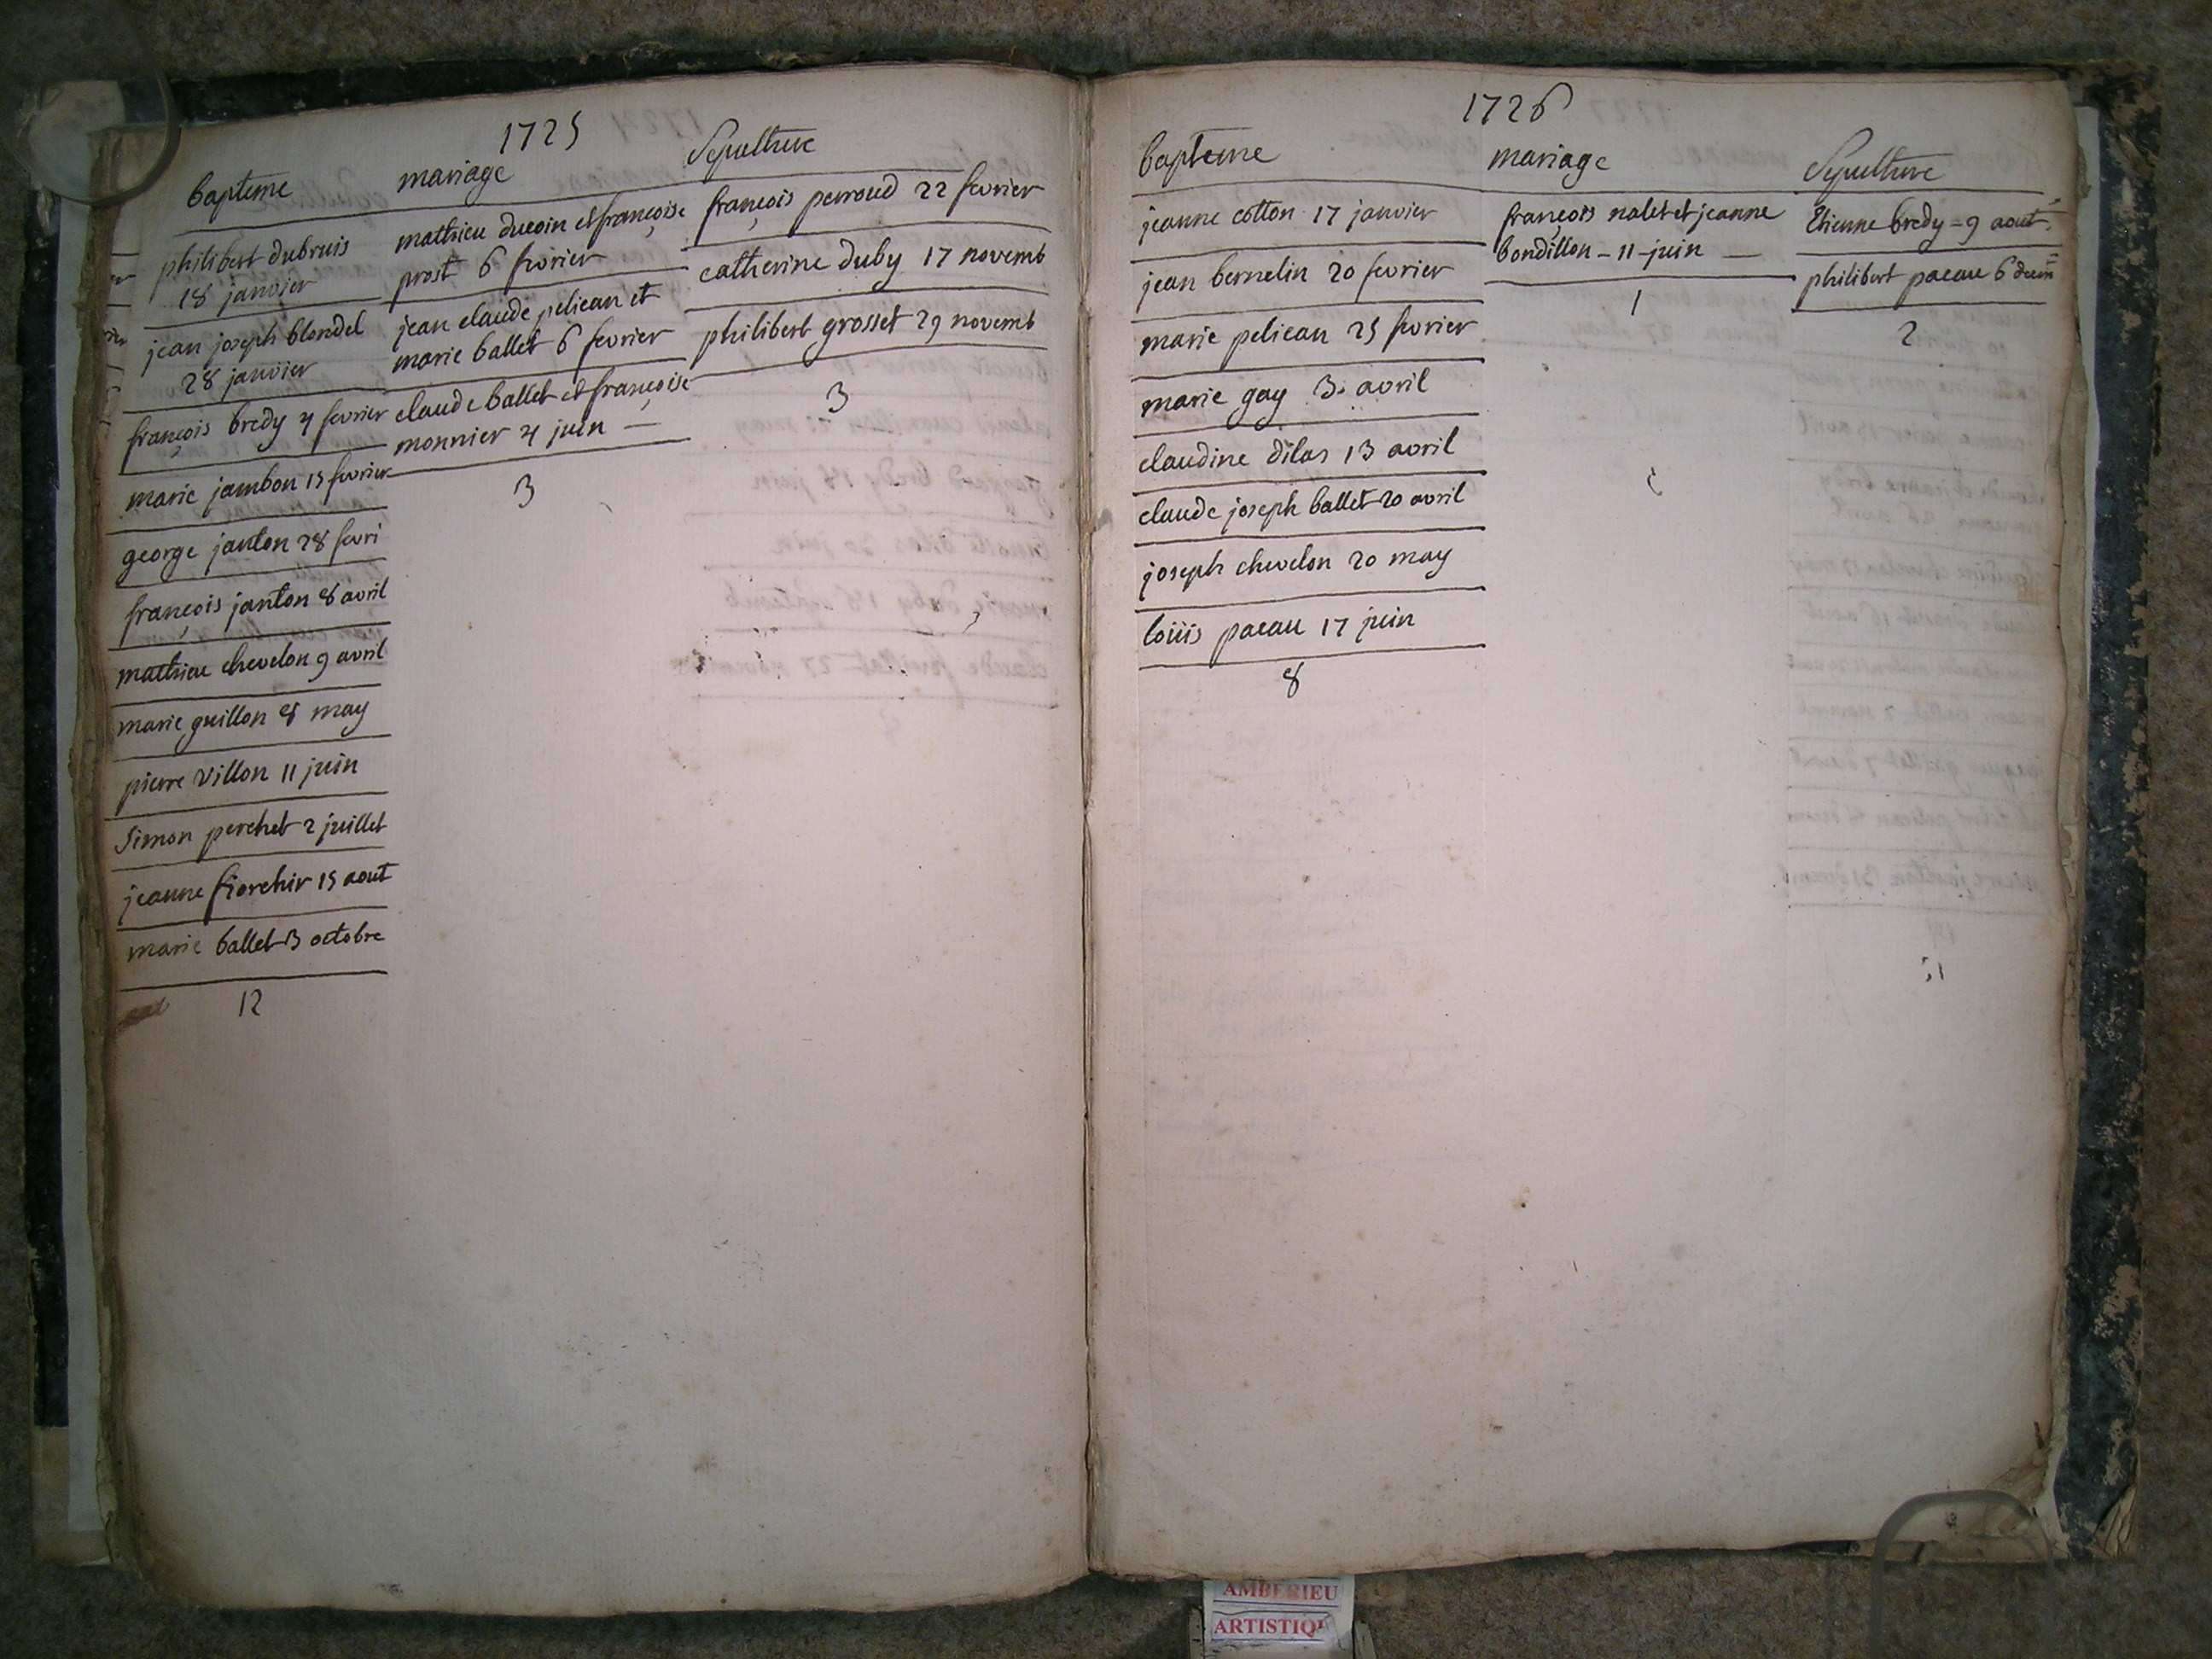 1725
bapteme
philibert dubruis
18 janvier
jean joseph blondel
28 janvier
françois bredy 4 fevrier
marie jambon 15 fevrier
george janton 28 fevri
françois janton 8 avril
mathieu chevelon 9 avril
marie guillon 8 may
pierre villon 11 juin
Simon perchet 2 juillet
jeanne fiorchir 15 aout
marie ballet 13 octobre
12
mariage
mathieu ducoin et françoise
prost 6 fevrier
jean claude pelican et
marie ballet 6 fevrier
claude ballet et françoise
monnier 4 juin
3
Sepulture
françois perroud 22 fevrier
catherine duby 17 novemb
philibert grosset 29 novemb
3
1726
bapteme
jeanne cotton 17 janvier
jean bernelin 20 fevrier
marie pelican 25 fevrier
marie gay 3 avril
claudine dilas 13 avril
claude joseph ballet 20 avril
joseph chevelon 20 may
loüis pacau 17 juin
8
mariage
françois nalet et jeanne
bondillon - 11 - juin
1
Sepulture
Etienne bredy - 9 aout
philibert pacau 6
2
AMBERIEU
ARTISTIQ